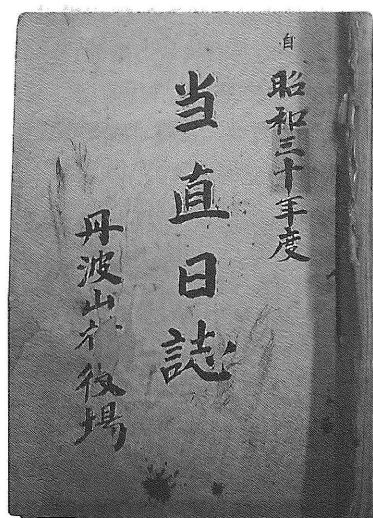 自
昭和三十年度
当直日誌
丹波山村役場